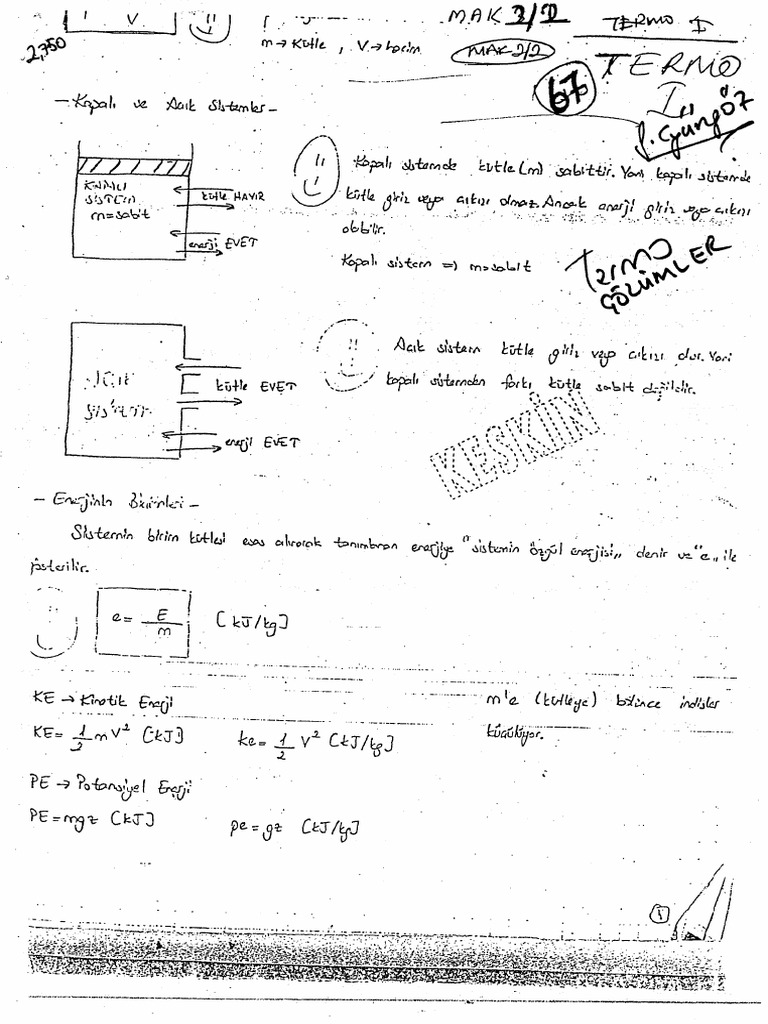 V
MAK 2/2
TERMO I
2,750
m → kütle , V → hacim
MAK 2/2
TERMO
I
67
- Kapalı ve Acık Sistemler -
KAPALI
SİSTEM
m=sabit
kütle HAYIR
enerji EVET
Kapalı sistemde kütle (m) sabittir. Yani kapalı sistemde
kütle giriş veya çıkışı olmaz. Ancak enerji giriş veya çıkışı
olabilir.
Kapalı sistem => m=sabit
TERMO
ÇÖZÜMLER
AÇIK
SİSTEM
kütle EVET
enerji EVET
Acık sistem kütle giriş veya çıkışı olur. Yani
kapalı sistemden farkı kütle sabit değildir.
KESKİN
- Enerjinin Birimleri -
Sistemin birim kütlesi esas alınarak tanımlanan enerjiye "sistemin özgül enerjisi„ denir ve "e„ ile
gösterilir.
e = E/m [kJ/kg]
KE → Kinetik Enerji
m'e (kütleye) bölünce indisler
KE = 1/2 m V² [kJ]
ke = 1/2 V² [kJ/kg]
küçülüyor.
PE → Potansiyel Enerji
PE = mgz [kJ]
pe = gz [kJ/kg]
1